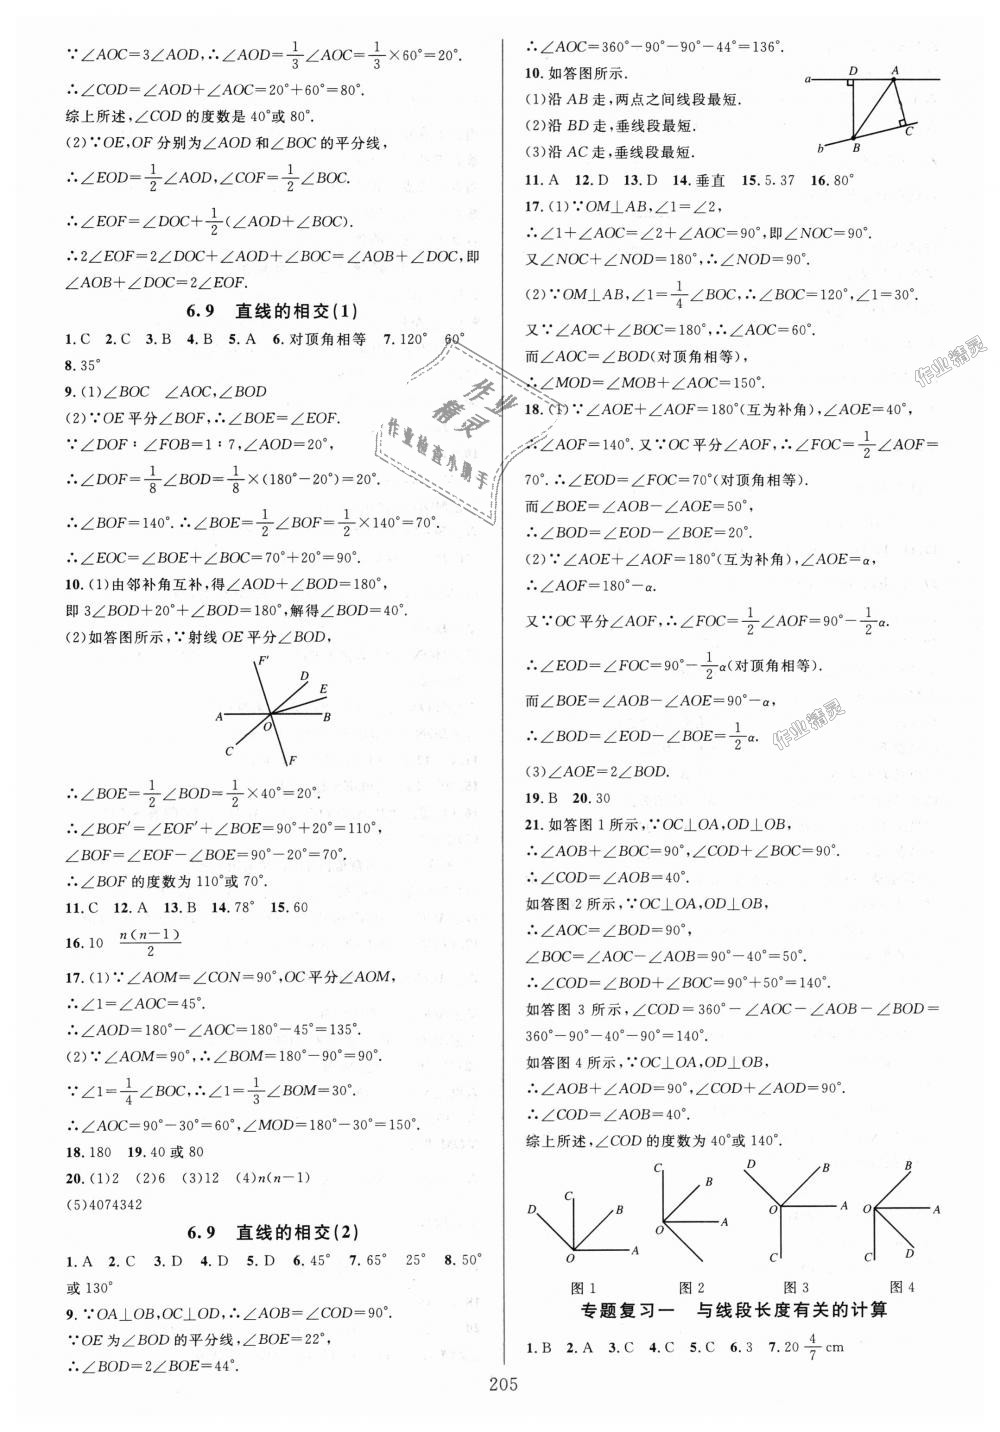 ∵∠AOC=3∠AOD,∴∠AOD=1/3∠AOC=1/3×60°=20°.
∴∠COD=∠AOD+∠AOC=20°+60°=80°.
综上所述,∠COD的度数是40°或80°.
(2)∵OE,OF分别为∠AOD和∠BOC的平分线,
∴∠EOD=1/2∠AOD,∠COF=1/2∠BOC.
∴∠EOF=∠DOC+1/2(∠AOD+∠BOC).
∴2∠EOF=2∠DOC+∠AOD+∠BOC=∠AOB+∠DOC,即
∠AOB+∠DOC=2∠EOF.
6.9 直线的相交(1)
1.C 2.C 3.B 4.B 5.A 6.对顶角相等 7.120° 60°
8.35°
9.(1)∠BOC ∠AOC,∠BOD
(2)∵OE平分∠BOF,∴∠BOE=∠EOF.
∵∠DOF:∠FOB=1:7,∠AOD=20°,
∴∠DOF=1/8∠BOD=1/8×(180°-20°)=20°.
∴∠BOF=140°.∴∠BOE=1/2∠BOF=1/2×140°=70°.
∴∠EOC=∠BOE+∠BOC=70°+20°=90°.
10.(1)由邻补角互补,得∠AOD+∠BOD=180°,
即3∠BOD+20°+∠BOD=180°,解得∠BOD=40°.
(2)如答图所示,∵射线OE平分∠BOD,
F′
D
E
A
O
B
C
F
∴∠BOE=1/2∠BOD=1/2×40°=20°.
∴∠BOF′=∠EOF′+∠BOE=90°+20°=110°,
∠BOF=∠EOF-∠BOE=90°-20°=70°.
∴∠BOF的度数为110°或70°.
11.C 12.A 13.B 14.78° 15.60
16.10 n(n-1)/2
17.(1)∵∠AOM=∠CON=90°,OC平分∠AOM,
∴∠1=∠AOC=45°.
∴∠AOD=180°-∠AOC=180°-45°=135°.
(2)∵∠AOM=90°,∴∠BOM=180°-90°=90°.
∵∠1=1/4∠BOC,∴∠1=1/3∠BOM=30°.
∴∠AOC=90°-30°=60°,∠MOD=180°-30°=150°.
18.180 19.40或80
20.(1)2 (2)6 (3)12 (4)n(n-1)
(5)4074342
6.9 直线的相交(2)
1.A 2.C 3.D 4.D 5.D 6.45° 7.65° 25° 8.50°
或130°
9.∵OA⊥OB,OC⊥OD,∴∠AOB=∠COD=90°.
∵OE为∠BOD的平分线,∠BOE=22°,
∴∠BOD=2∠BOE=44°.
∴∠AOC=360°-90°-90°-44°=136°.
10.如答图所示.
(1)沿AB走,两点之间线段最短.
(2)沿BD走,垂线段最短.
(3)沿AC走,垂线段最短.
a
D
A
b
B
C
11.A 12.D 13.D 14.垂直 15.5.37 16.80°
17.(1)∵OM⊥AB,∠1=∠2,
∴∠1+∠AOC=∠2+∠AOC=90°,即∠NOC=90°.
又∠NOC+∠NOD=180°,∴∠NOD=90°.
(2)∵OM⊥AB,∠1=1/4∠BOC,∴∠BOC=120°,∠1=30°.
又∵∠AOC+∠BOC=180°,∴∠AOC=60°.
而∠AOC=∠BOD(对顶角相等),
∴∠MOD=∠MOB+∠AOC=150°.
18.(1)∵∠AOE+∠AOF=180°(互为补角),∠AOE=40°,
∴∠AOF=140°.又∵OC平分∠AOF,∴∠FOC=1/2∠AOF=
70°.∴∠EOD=∠FOC=70°(对顶角相等).
而∠BOE=∠AOB-∠AOE=50°,
∴∠BOD=∠EOD-∠BOE=20°.
(2)∵∠AOE+∠AOF=180°(互为补角),∠AOE=α,
∴∠AOF=180°-α.
又∵OC平分∠AOF,∴∠FOC=1/2∠AOF=90°-1/2α.
∴∠EOD=∠FOC=90°-1/2α(对顶角相等).
而∠BOE=∠AOB-∠AOE=90°-α,
∴∠BOD=∠EOD-∠BOE=1/2α.
(3)∠AOE=2∠BOD.
19.B 20.30
21.如答图1所示,∵OC⊥OA,OD⊥OB,
∴∠AOB+∠BOC=90°,∠COD+∠BOC=90°.
∴∠COD=∠AOB=40°.
如答图2所示,∵OC⊥OA,OD⊥OB,
∴∠AOC=∠BOD=90°,
∠BOC=∠AOC-∠AOB=90°-40°=50°.
∴∠COD=∠BOD+∠BOC=90°+50°=140°.
如答图3所示,∠COD=360°-∠AOC-∠AOB-∠BOD=
360°-90°-40°-90°=140°.
如答图4所示,∵OC⊥OA,OD⊥OB,
∴∠AOB+∠AOD=90°,∠COD+∠AOD=90°.
∴∠COD=∠AOB=40°.
综上所述,∠COD的度数为40°或140°.
D C B O A
C B O A
D B O A C
B O A C D
图1 图2 图3 图4
专题复习一 与线段长度有关的计算
1.B 2.A 3.C 4.C 5.C 6.3 7.20 4/7 cm
205
作业精灵
作业检查小助手
作业精灵
作业精灵